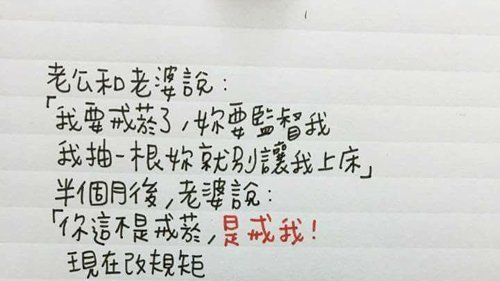 老公和老婆說：
「我要戒菸了，妳要監督我
我抽一根妳就別讓我上床」
半個月後，老婆說：
「你這不是戒菸，是戒我！
現在改規矩